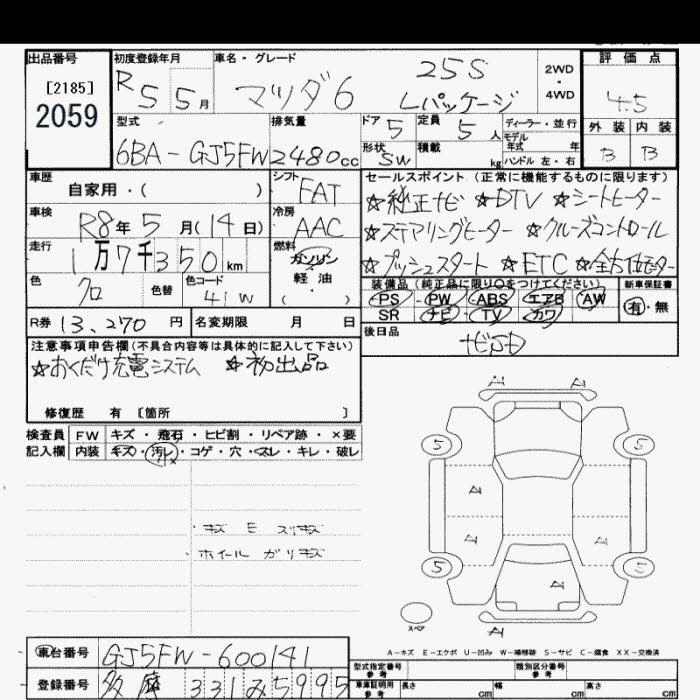 出品番号
[2185]
2059
初度登録年月
R5 5月
車名・グレード
マツダ6
25S
Lパッケージ
2WD
・
4WD
評価点
4.5
外装 内装
B B
型式
6BA-GJ5FW
排気量
2480cc
ドア 5
定員 5人
ディーラー・並行
モデル
年式 年
形状 SW
積載 kg
ハンドル 左・右
車歴
自家用・( )
シフト
FAT
セールスポイント(正常に機能するものに限ります)
☆純正ナビ ☆DTV ☆シートヒーター
☆ステアリングヒーター ☆クルーズコントロール
☆プッシュスタート ☆ETC ☆全方位モニター
車検
R8年5月(14日)
冷房
AAC
走行
1万7千350km
燃料
ガソリン
・
軽油
( )
色
クロ
色替
色コード
41W
装備品(純正品に限り○をつけてください)
PS PW ABS エアB AW
SR ナビ TV カワ
新車保証書
有・無
R券 13,270円
名変期限 月 日
後日品
ナビSD
注意事項申告欄(不具合内容等は具体的に記入して下さい)
☆おくだけ充電システム ☆初出品
修復歴 有 〔箇所 〕
検査員
記入欄
FW キズ・飛石・ヒビ割・リペア跡・×要
内装 キズ・汚レ・コゲ・穴・スレ・キレ・破レ
・キズ E スリキズ
・ホイール ガリキズ
A
A
5
5
A
A
A
5
5
A
A
スペア
A-キズ E-エクボ U-凹み W-補修跡 S-サビ C-腐食 XX-交換済
車台番号
GJ5FW-600141
登録番号
多摩 331 み 5995
型式指定番号
参考
類別区分番号
参考
車庫証明用
参考
長さ cm
幅 cm
高さ cm